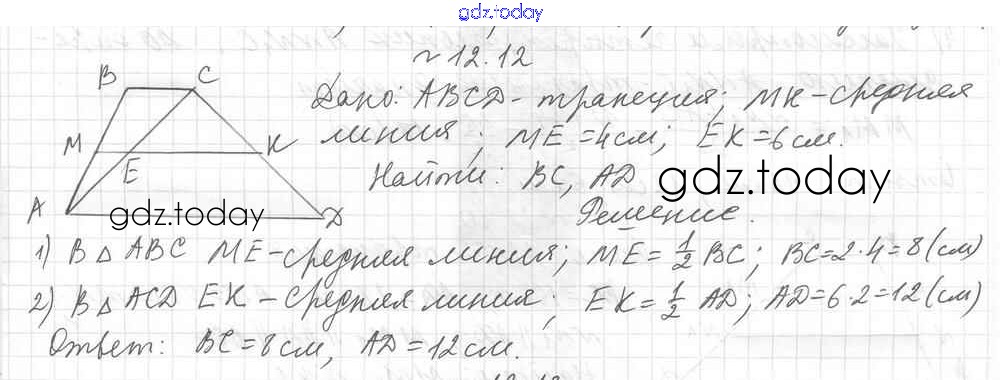 gdz.today
№ 12.12
B C
Дано: ABCD - трапеция; MK - средняя
M K
линия; ME = 4 см; EK = 6 см.
E
Найти: BC, AD
gdz.today
A D
gdz.today
Решение.
1) В △ ABC ME - средняя линия; ME = 1/2 BC; BC = 2 · 4 = 8 (см)
2) В △ ACD EK - средняя линия; EK = 1/2 AD; AD = 6 · 2 = 12 (см)
Ответ: BC = 8 см, AD = 12 см.